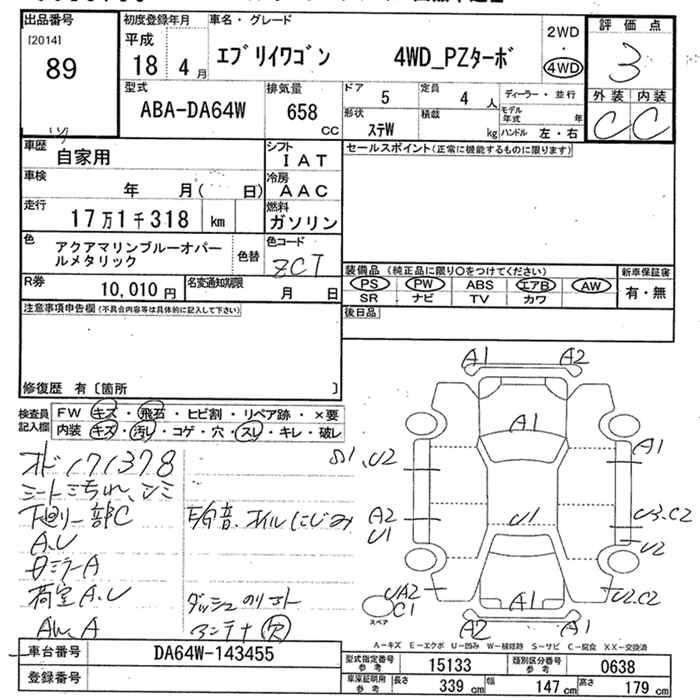 出品番号
[2014]
89
初度登録年月
平成
18 4 月
車名・グレード
エブリイワゴン 4WD_PZターボ
2WD
・
4WD
評価点
3
外装 内装
C C
型式
ABA-DA64W
排気量
658
CC
ドア 5
定員 4 人
ディーラー・並行
形状 ステW
積載 kg
モデル年式 年
ハンドル 左・右
車歴
自家用
シフト
IAT
セールスポイント(正常に機能するものに限ります)
車検
年 月( 日)
冷房
AAC
走行
17万1千318 km
燃料
ガソリン
色
アクアマリンブルーオパー
ルメタリック
色替
色コード
ZCT
装備品 (純正品に限り○をつけてください)
新車保証書
PS PW ABS エアB AW
SR ナビ TV カワ
有・無
R券
10,010 円
名変通知期限
月 日
後日品
注意事項申告欄(不具合内容等は具体的に記入して下さい)
修復歴 有〔箇所 〕
検査員
記入欄
FW キズ・飛石・ヒビ割・リペア跡・×要
内装 キズ・汚レ・コゲ・穴・スレ・キレ・破レ
オド171378
シート汚れ、シミ
下廻り一部C
異音、オイルにじみ
A.U
Bミラー A
荷室A.U
ダッシュのりコト
AW A
アンテナ 欠
A1 A2
A1
S1、U2
A1
A2
U1
U1
U3.C2
U2
UA2
C1
スペア
A1
U2.C2
A2 A1
A-キズ E-エクボ U-凹み W-補修跡 S-サビ C-腐食 XX-交換済
車台番号
DA64W-143455
型式指定番号
参考
15133
類別区分番号
参考
0638
登録番号
車庫証明用
参考
長さ 339 cm
幅 147 cm
高さ 179 cm